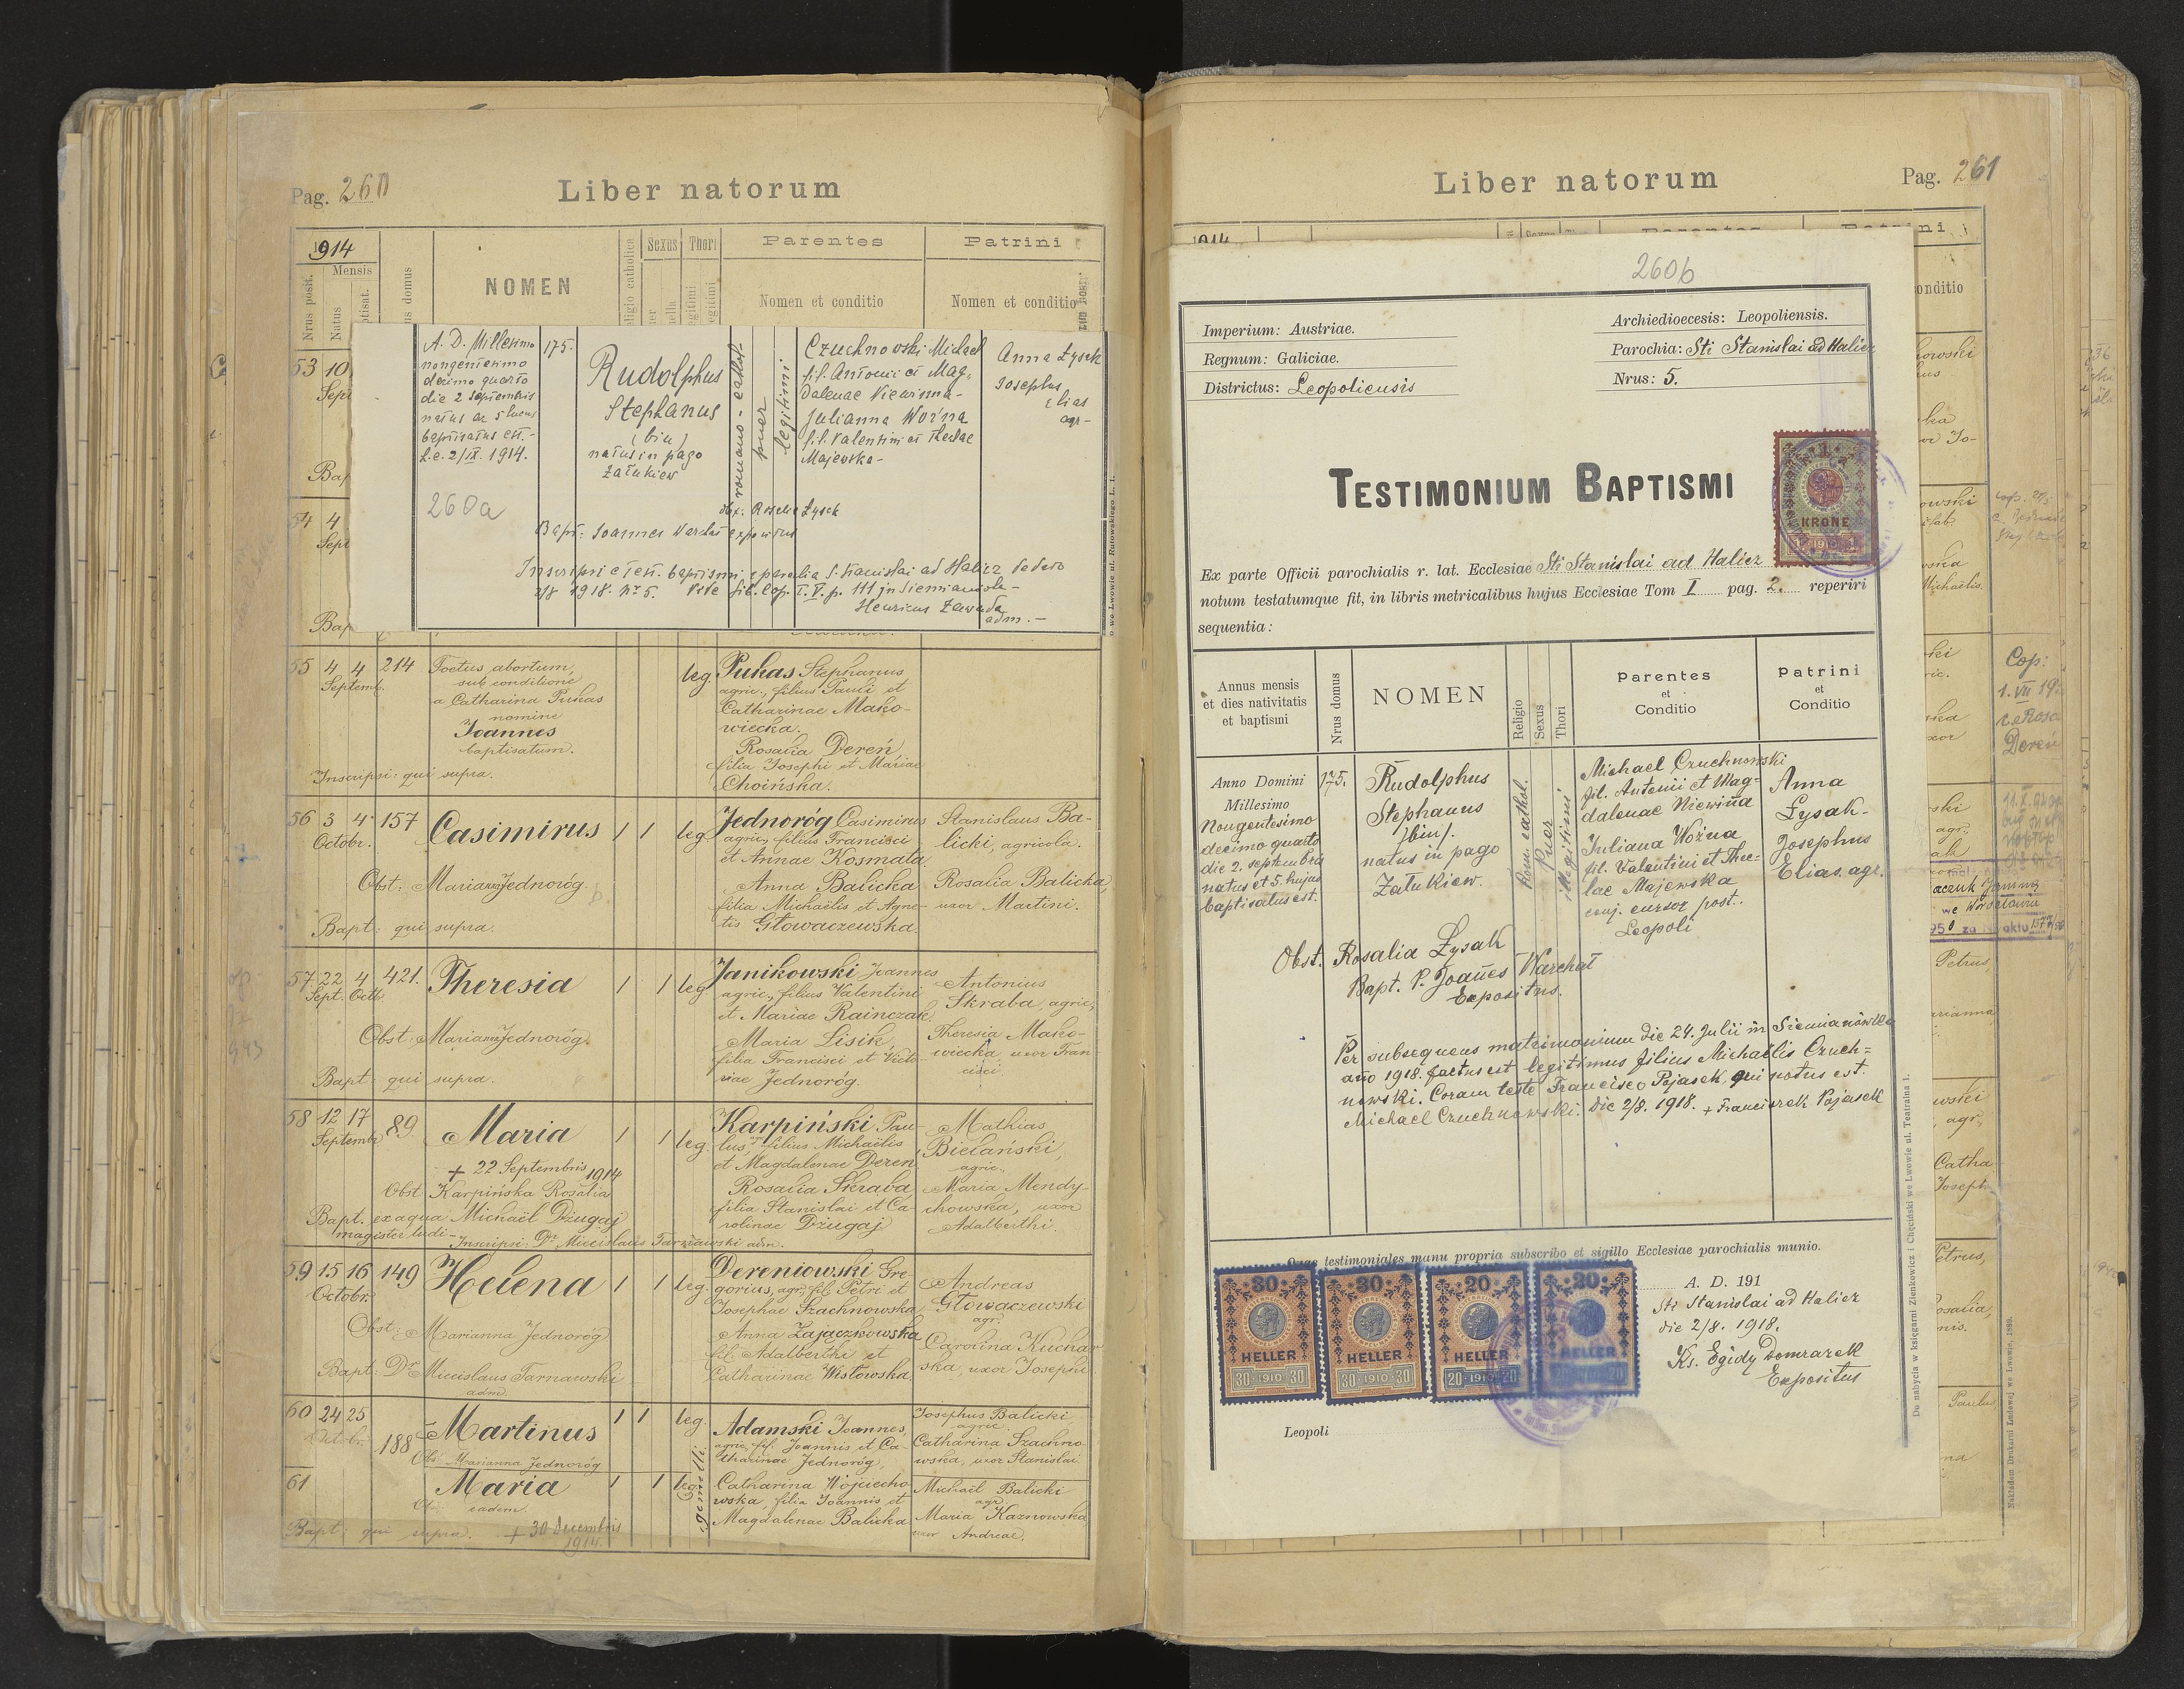 Pag. 260
Liber natorum
1914
Mensis
Nrus posit.
Natus
NOMEN
Sexus
Thori
Parentes
Patrini
Nomen et conditio
Nomen et conditio
53 10
Sept
Bap
54 4
Sept
Bap
A. D. Millesimo
nongentesimo
decimo quarto
die 2 Septembris
natus ac 5 huius
baptisatus est.-
L.e. 2/IX. 1914.
260a
175.
Rudolphus
Stephanus
(bin)
natus in pago
Załukiew
romano-cathol.
puer
legitimi
Czuchnowski Michael
fil. Antonii et Mag-
dalenae Niewinna-
Julianna Woźna
fil. Valentini et Theclae
Majewska-
Anna Łysak
Josephus
Elias
agr-
obst. Rosalia Łysak
Bapt: Joannes Warchał expositus
Inscripsi e test. baptismi e parochia S. Stanislai ad Halicz de dato
2/8 1918. Nr 5. Vide lib. cop. T. V. p. 111 in Siemianówka-
Henricus Zawada
adm.-
55 4 4 214
Septemb.
Foetus abortum,
sub conditione
a Catharina Puhas
nomine
Joannes
baptisatum.
Inscripsi: qui supra.
leg.
Puhas Stephanus
agric., filius Pauli et
Catharinae Mako-
wiecka,
Rosalia Dereń
filia Josephi et Mariae
Choińska.
56 3 4 157
Octobr.
Casimirus 1 1 leg.
Obst: Marianna Jednoróg
Bapt: qui supra.
Jednoróg Casimirus
agric., filius Francisci
et Annae Kosmata.
Anna Balicka
filia Michaëlis et Agne-
tis Głowaczewska.
Stanislaus Ba-
licki, agricola.
Rosalia Balicka,
uxor Martini.
57 22 4 421.
Sept. Octb.
Theresia 1 1 leg
Obst: Marianna Jednoróg.
Bapt: qui supra.
Janikowski Joannes
agric., filius Valentini
et Mariae Rainczak.
Maria Lisik,
filia Francisci et Victo-
riae Jednoróg.
Antonius
Skraba, agric.,
Theresia Mako-
wiecka, uxor Fran-
cisci
58 12 17 89
Septemb.
Maria 1 1 leg.
+ 22 Septembris 1914
Obst Karpińska Rosalia
Bapt. ex aqua Michaël Dżugaj
magister ludi-
Inscripsi: Dr. Miecislaus Tarnawski adm.
Karpiński Pau-
lus, filius Michaëlis
et Magdalenae Deren
Rosalia Skraba
filia Stanislai et Ca-
rolinae Dżugaj
Mathias
Bielański,
agric.,
Maria Mendy-
chowska, uxor
Adalberthi.
59 15 16 149
Octobr.
Helena 1 1 leg.
Obst: Marianna Jednoróg
Bapt: Dr Miecislaus Tarnawski
adm.
Dereniowski Gre-
gorius, agr., fil. Petri et
Josephae Szachnowska,
Anna Zajączkowska
fil. Adalberthi et
Catharinae Wisłowska.
Andreas
Głowaczewski
agr.
Carolina Kuchar-
ska, uxor Josephi
60 24 25
188
Martinus 1 1 leg.
Obs: Marianna Jednoróg
gemelli
Adamski Joannes,
agric., fil. Joannis et Ca-
tharinae Jednoróg,
Josephus Balicki,
agric.
Catharina Szachno-
wska, uxor Stanislai.
61
Maria 1 1 leg.
eadem.
Catharina Wojciecho-
wska, filia Joannis et
Magdalenae Balicka
Michaël Balicki
agr.
Maria Kaznowska
uxor Andreae.
Bapt: qui supra. + 30 decembris
1914.
Liber natorum
Pag. 261
260b
Imperium: Austriae.
Regnum: Galiciae.
Districtus: Leopoliensis
Archiedioecesis: Leopoliensis.
Parochia: Sti Stanislai ad Halicz
Nrus: 5.
TESTIMONIUM BAPTISMI
KRONE
1910
Ex parte Officii parochialis r. lat. Ecclesiae Sti Stanislai ad Halicz
notum testatumque fit, in libris metricalibus hujus Ecclesiae Tom I pag. 2. reperiri
sequentia:
Annus mensis
et dies nativitatis
et baptismi
Nrus domus
NOMEN
Religio
Sexus
Thori
Parentes
et
Conditio
Patrini
et
Conditio
Anno Domini
Millesimo
Nongentesimo
decimo quarto
die 2. septembris
natus et 5. hujus
baptisatus est.
175.
Rudolphus
Stephanus
/bin/.
natus in pago
Załukiew.
Rom. cathol.
Puer
illegitimi
Michael Czuchnowski
fil. Antonii et Mag-
dalenae Niewinna
Juliana Woźna
fil. Valentini et Thec-
lae Majewska
conj. cursor post.
Leopoli
Anna
Łysak-
Josephus
Elias. agr.
Obst. Rosalia Łysak
Bapt. P. Joannes Warchał
Expositus.
Per subsequens matrimonium die 24. Julii in Siemianówka
ano 1918. factus est legitimus filius Michaëlis Czuch=
nowski. Coram teste Francisco Pojasek, qui notus est.
Michael Czuchnowski. Die 2/8. 1918. + Franciszek Pojasek
Quas testimoniales manu propria subscribo et sigillo Ecclesiae parochialis munio.
30 HELLER 30 1910 30
30 HELLER 30 1910 30
20 HELLER 20 1910 20
20 HELLER
A. D. 191
Sti Stanislai ad Halicz
die 2/8. 1918.
Ks. Egidy Domrazek
Expositus
Leopoli
Do nabycia w księgarni Zienkowicz i Chęciński we Lwowie ul. Teatralna 1.
Nakładem Drukarni Ludowej we Lwowie. 1889.
Cop:
1. VII
Rosa
Dereń